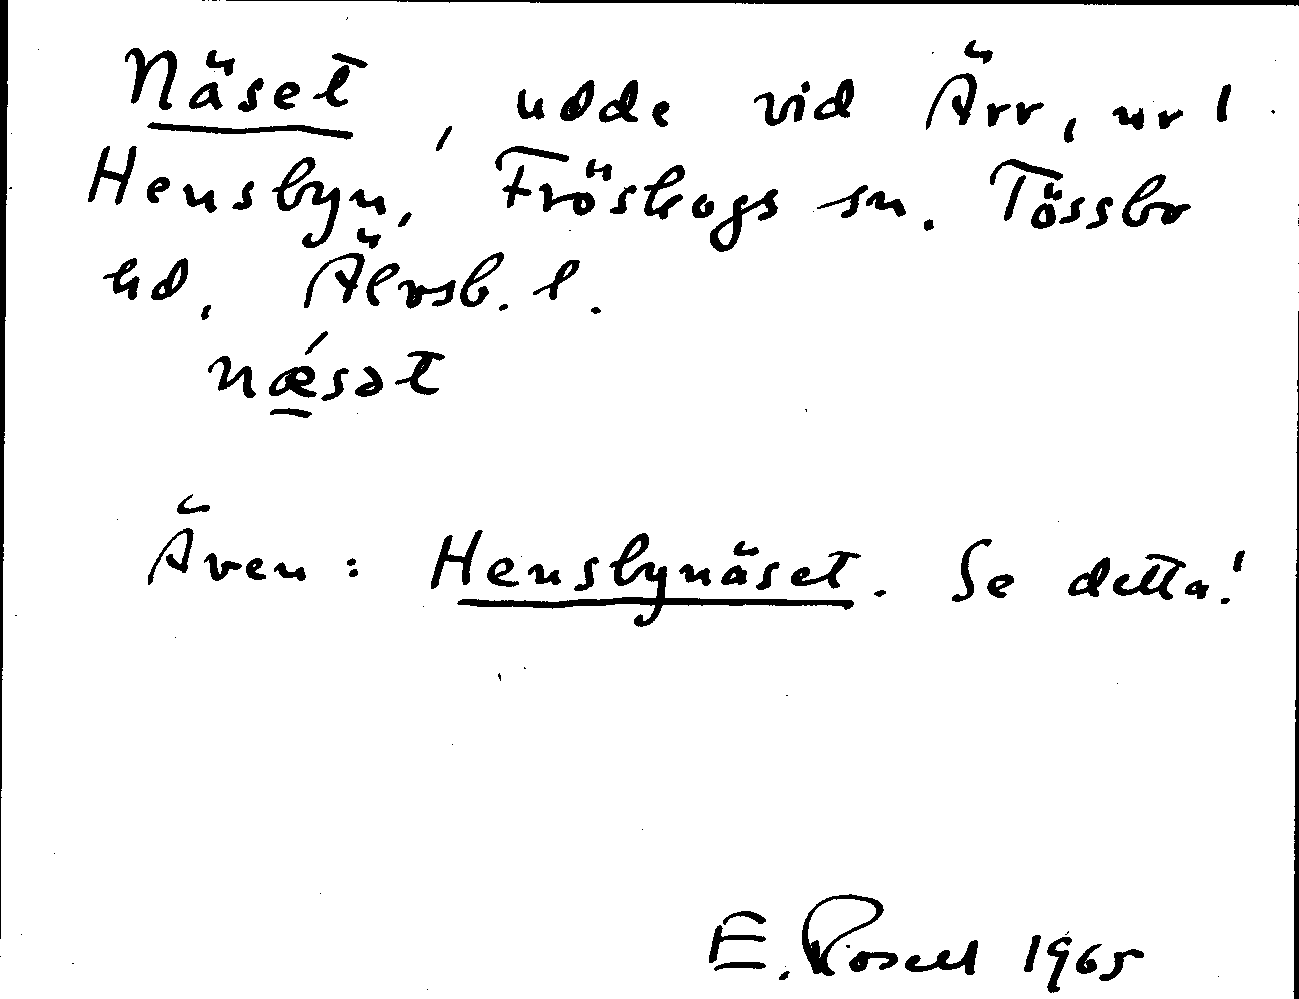 Näset, udde vid Ärr, nr 1
Hensbyn, Fröskogs sn. Tössbo
hd, Älvsb. l.
nǽ̠sət
Även: Hensbynäset. Se detta!
E. Rosell 1965